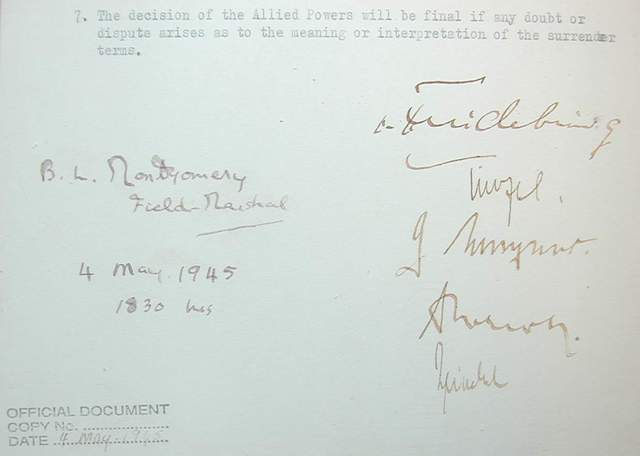 7. The decision of the Allied Powers will be final if any doubt or
dispute arises as to the meaning or interpretation of the surrender
terms.
v. Friedeburg
Kinzel.
G Wagner.
Friedel
B. L. Montgomery
Field-Marshal
4 May 1945
1830 hrs
OFFICIAL DOCUMENT
COPY No. ....................
DATE 4 May 1945